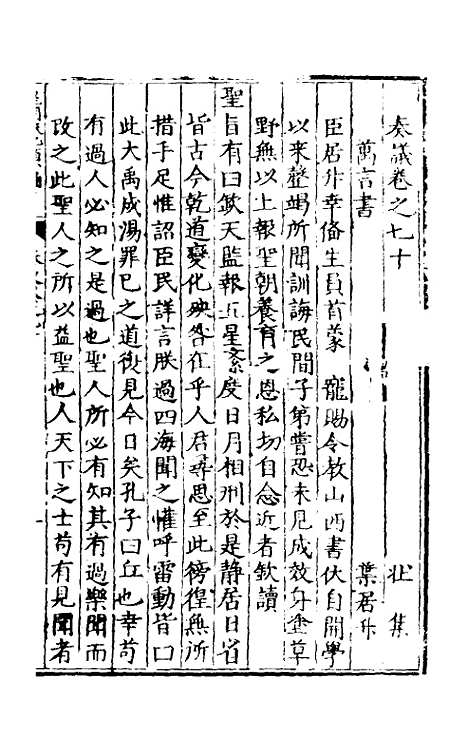 奏議卷之七十　壯集
萬言書　葉居升
臣居升幸俻生員首蒙　寵賜令教山西書伏自開學
以來罄竭所聞訓誨民間子弟嘗恐未見成效身塗草
野無以上報聖朝養育之恩私切自念近者欽讀
聖旨有曰欽天監報五星紊度日月相刑於是静居日省
皆古今乾道變化殃咎在乎人君尋思至此徬徨無所
措手足惟詔臣民詳言朕過四海聞之懽呼雷動皆曰
此大禹成湯罪已之道復見今日矣孔子曰丘也幸苟
有過人必知之是過也聖人所必有知其有過樂聞而
改之此聖人之所以益聖也人天下之士苟有見聞者